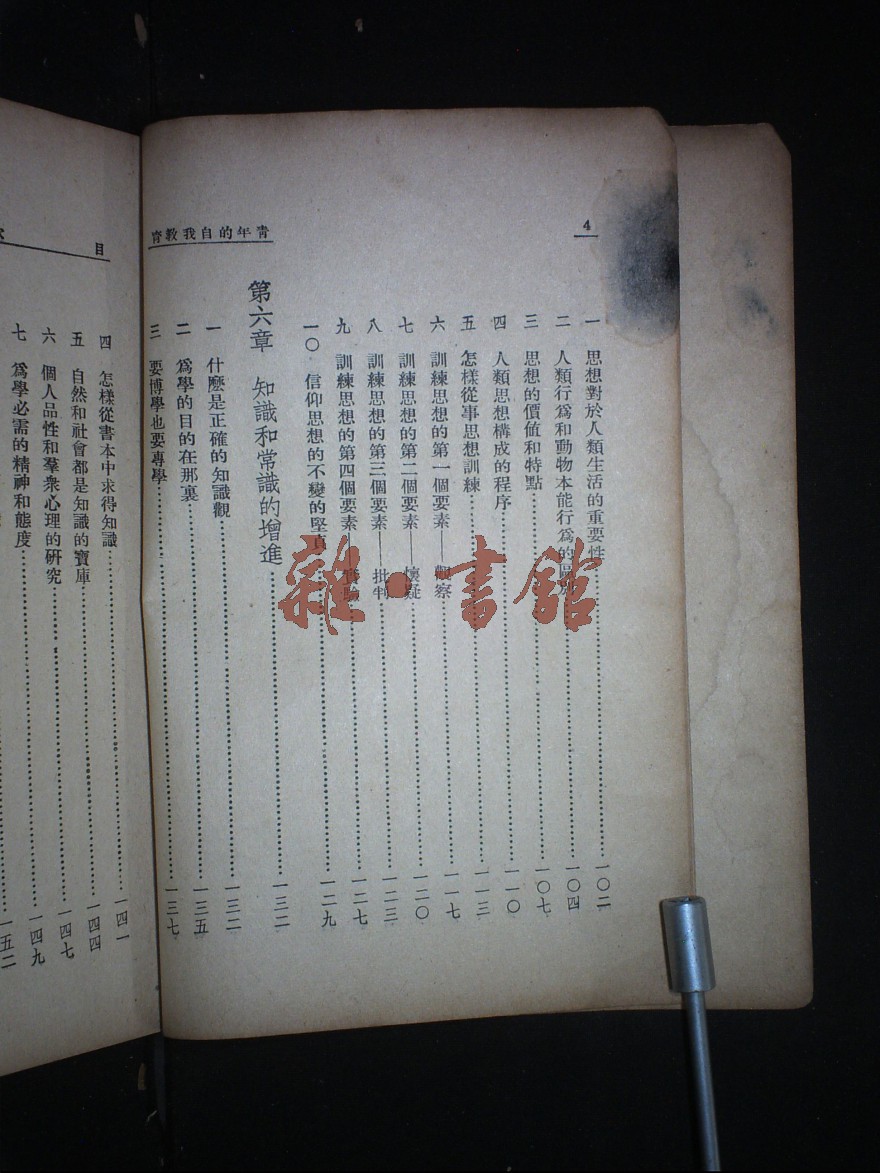 4
青年的自我教育
一　思想對於人類生活的重要性……一〇二
二　人類行爲和動物本能行爲的區別……一〇四
三　思想的價值和特點……一〇七
四　人類思想構成的程序……一一〇
五　怎樣從事思想訓練……一一三
六　訓練思想的第一個要素——觀察……一一七
七　訓練思想的第二個要素——懷疑……一二〇
八　訓練思想的第三個要素——批判……一二三
九　訓練思想的第四個要素——實驗……一二七
一〇　信仰思想的不變的堅貞……一二九
第六章　知識和常識的增進……一三二
一　什麼是正確的知識觀……一三二
二　爲學的目的在那裏……一三五
三　要博學也要專學……一三七
目
四　怎樣從書本中求得知識……一四一
五　自然和社會都是知識的寶庫……一四四
六　個人品性和羣衆心理的研究……一四七
七　爲學必需的精神和態度……一四九
一五二
雜·書館